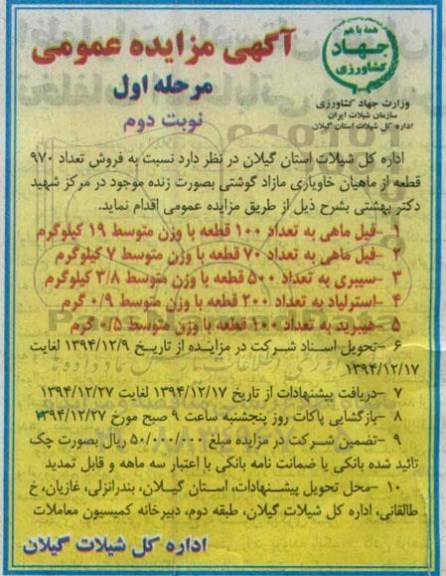 همه با هم
جهاد
کشاورزی
وزارت جهاد کشاورزی
سازمان شیلات ایران
اداره کل شیلات استان گیلان
آگهی مزایده عمومی
مرحله اول
نوبت دوم
اداره کل شیلات استان گیلان در نظر دارد نسبت به فروش تعداد ۹۷۰
قطعه از ماهیان خاویاری مازاد گوشتی بصورت زنده موجود در مرکز شهید
دکتر بهشتی بشرح ذیل از طریق مزایده عمومی اقدام نماید.
۱ -فیل ماهی به تعداد ۱۰۰ قطعه با وزن متوسط ۱۹ کیلوگرم
۲ -فیل ماهی به تعداد ۷۰ قطعه با وزن متوسط ۷ کیلوگرم
۳ -سیبری به تعداد ۵۰۰ قطعه با وزن متوسط ۳/۸ کیلوگرم
۴ -استرلیاد به تعداد ۲۰۰ قطعه با وزن متوسط ۰/۹ گرم
۵ -هیبرید به تعداد ۱۰۰ قطعه با وزن متوسط ۰/۵ گرم
۶ -تحویل اسناد شرکت در مزایده از تاریخ ۱۳۹۴/۱۲/۹ لغایت
۱۳۹۴/۱۲/۱۷
۷ -دریافت پیشنهادات از تاریخ ۱۳۹۴/۱۲/۱۷ لغایت ۱۳۹۴/۱۲/۲۷
۸ -بازگشایی پاکات روز پنجشنبه ساعت ۹ صبح مورخ ۱۳۹۴/۱۲/۲۷
۹ -تضمین شرکت در مزایده مبلغ ۵۰/۰۰۰/۰۰۰ ریال بصورت چک
تائید شده بانکی یا ضمانت نامه بانکی با اعتبار سه ماهه و قابل تمدید
۱۰ -محل تحویل پیشنهادات، استان گیلان، بندرانزلی، غازیان، خ
طالقانی، اداره کل شیلات گیلان، طبقه دوم، دبیرخانه کمیسیون معاملات
اداره کل شیلات گیلان